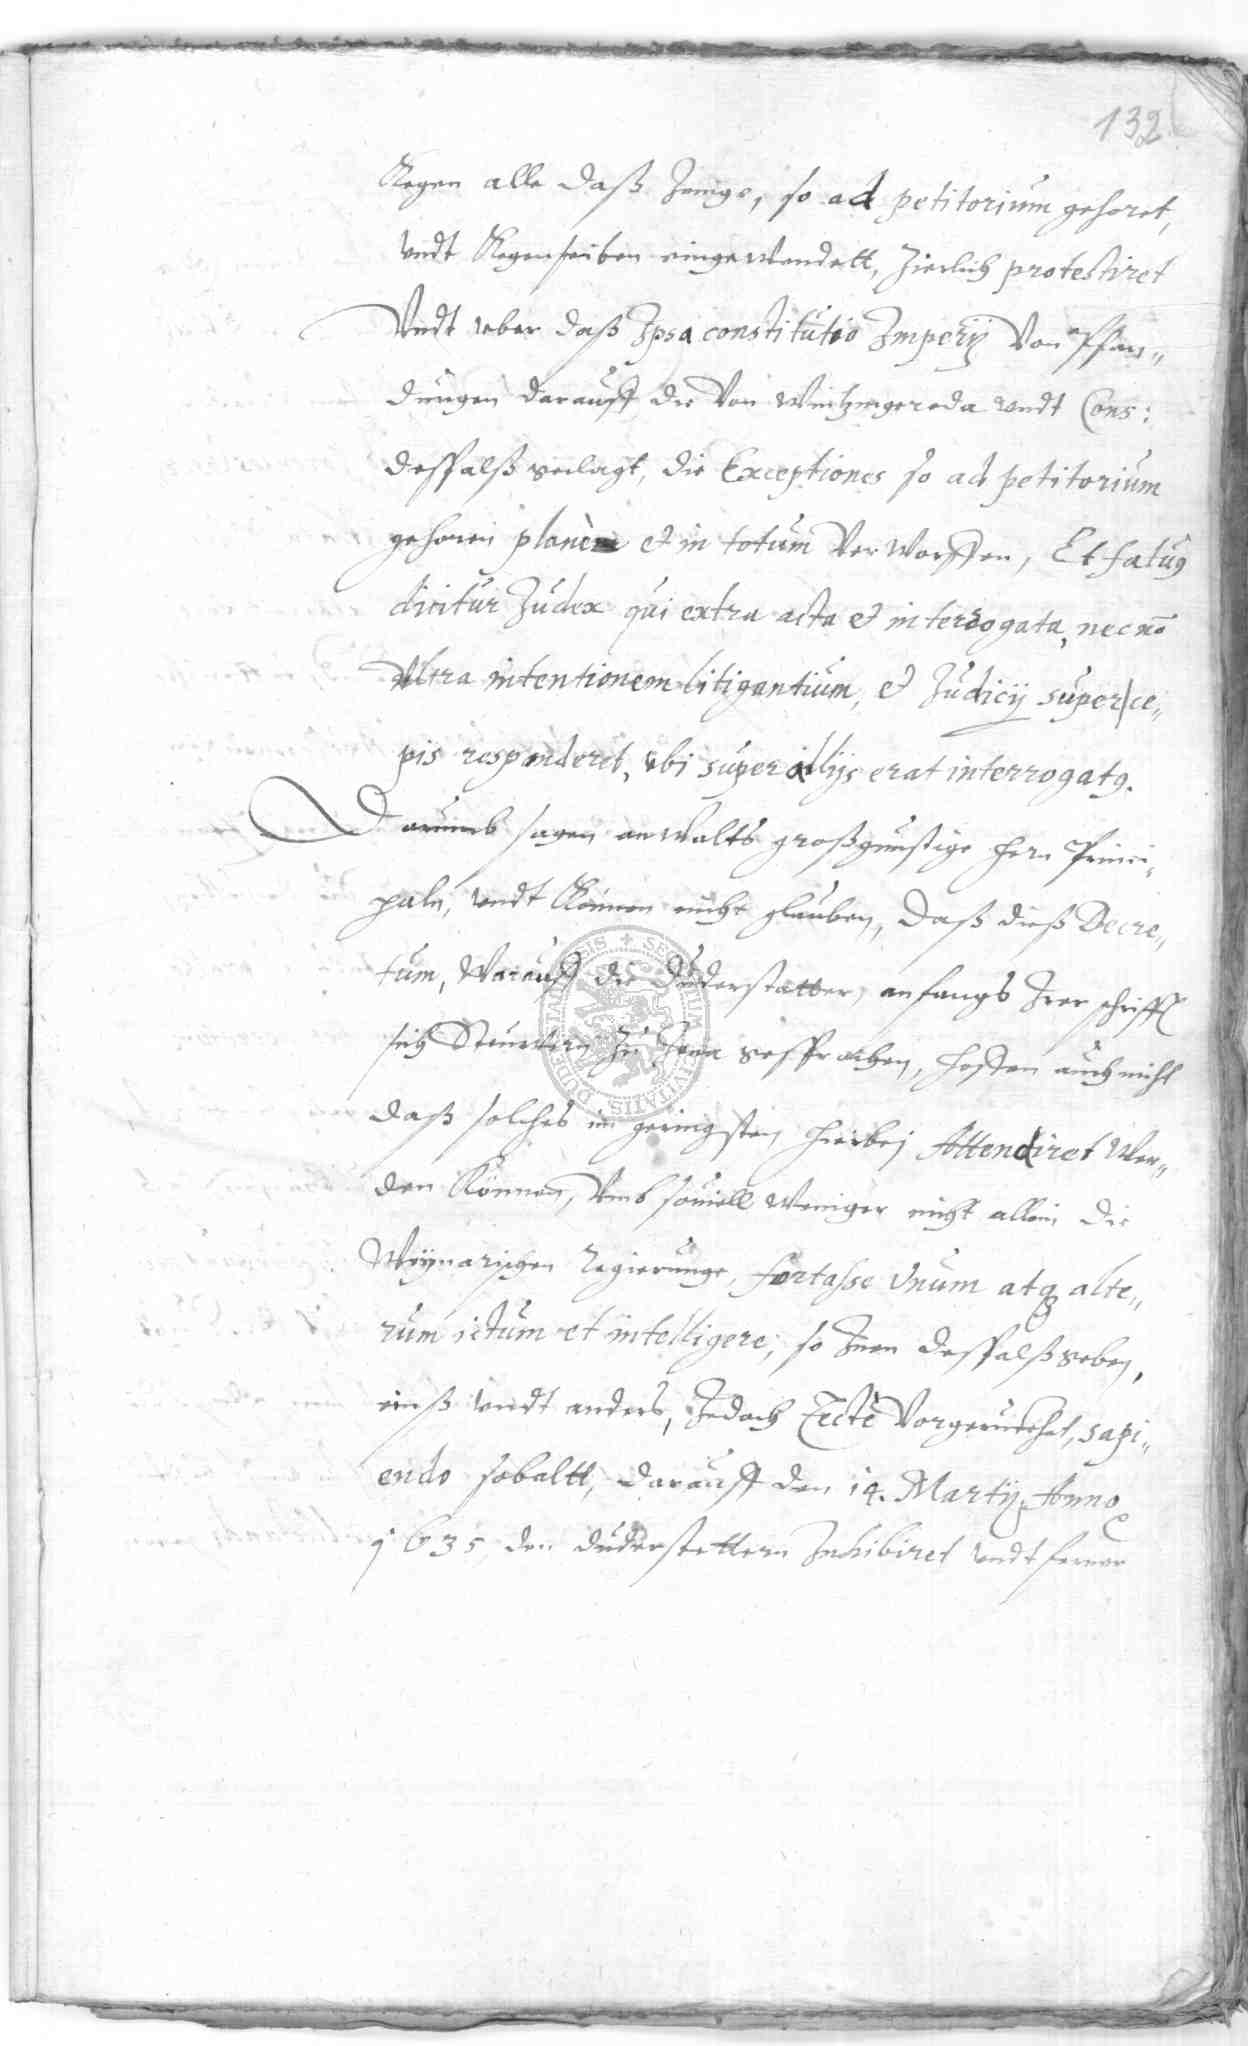 132
Gegen alle daß Jenige, so ad petitorium gehoret,
undt Gegenseiten eingewendett, Zierlich protestiret
Undt uber daß Ipsa constitutio Imperij Von Pfan„
dungen darauff die Von Wintzingeroda undt Cons:
desfalß geclagt, die Exceptiones so ad petitorium
gehoren planè et in totum Verworffen, Et fatuus
dicitur Judex qui extra acta et interrogata, necnō
Ultra intentionem litigantium, et Judicij super ce„
pis responderet, ubi super allijs erat interrogatus.
Darumb sagen anwalts großgunstige Hern Princi„
paln, undt Können nicht glauben, Daß dieß Decre„
tum, Warauff die Duderstatter anfangs Irer schrifft
sich zu Jena gesprochen, hoffen auch nicht
daß solches im geringsten hierbej Attendiret Wer„
den Können, Umb souiell Weniger nicht allein die
Weÿmarischen Regierunge, fortasse Unum atq alte„
rum ictum et intelligere, so Inen desfalß geben,
einß undt anders, Jedoch Tectè Vorgeruckhet, sapi„
endo sobaltt, darauff den 14. Martij Anno
1635, den duderstettern Inhibiret undt ferner
SIGILLUM CIVITATIS DUDERSTADENSIS